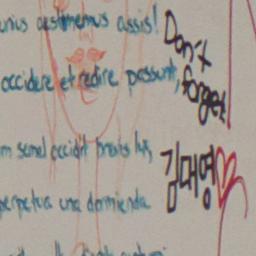 unius aestimemus assis!
occidere et redire possunt,
m semel occidit brevis lux,
perpetua una dormienda
Don't
forget
김대영